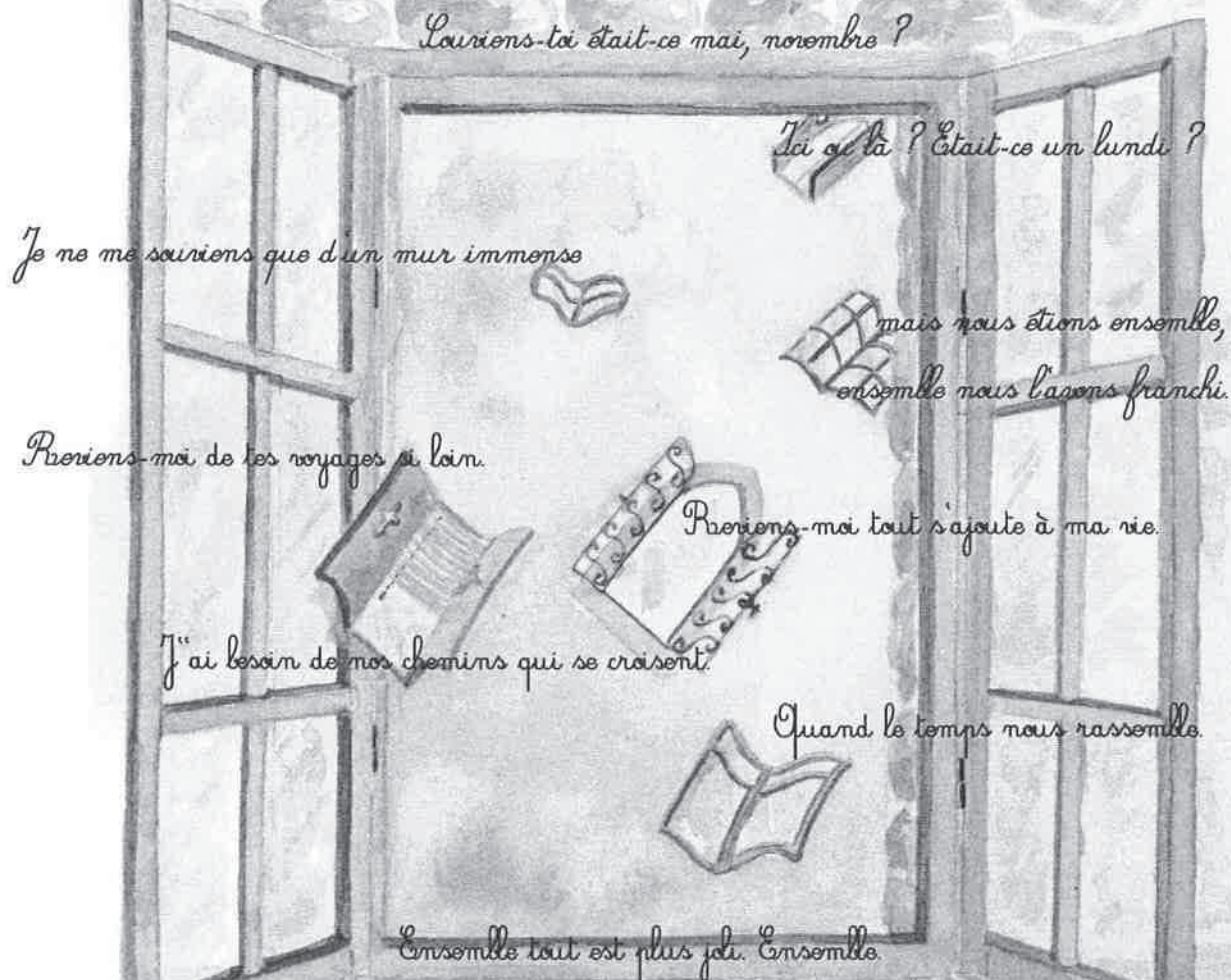 Souviens-toi était-ce mai, novembre ?
Ici ou là ? Etait-ce un lundi ?
Je ne me souviens que d'un mur immense
mais nous étions ensemble,
ensemble nous l'avons franchi.
Reviens-moi de tes voyages si loin.
Reviens-moi tout s'ajoute à ma vie.
J'‘ai besoin de nos chemins qui se croisent.
Quand le temps nous rassemble.
Ensemble tout est plus joli. Ensemble.